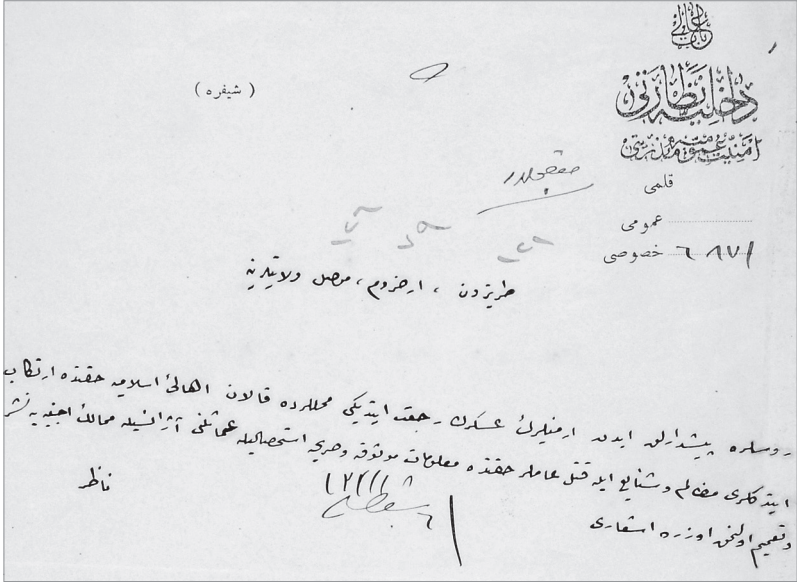 باب عالی
داخلیه نظارتی
امنیت عمومیه مدیریتی
( شیفره )
قلمی
عمومی
خصوصی ٦
طربزون ، ارضروم ، موصل ولایتلرینه
روسلره پیشدارلق ایدن ارمنیلرڭ عسکرڭ رجعت ایتدیکی محللرده قالان اهالئ اسلامیه حقنده ارتکاب
ایتدکلری مظالم و شنایع ایله قتل عاملر حقنده معلومات موثوقه و صریحه استحصالیله عثمانلی آژانسیله ممالك اجنبیه‌یه نشر
و تعمیم اولنمق اوزره اشعاری
ناظر